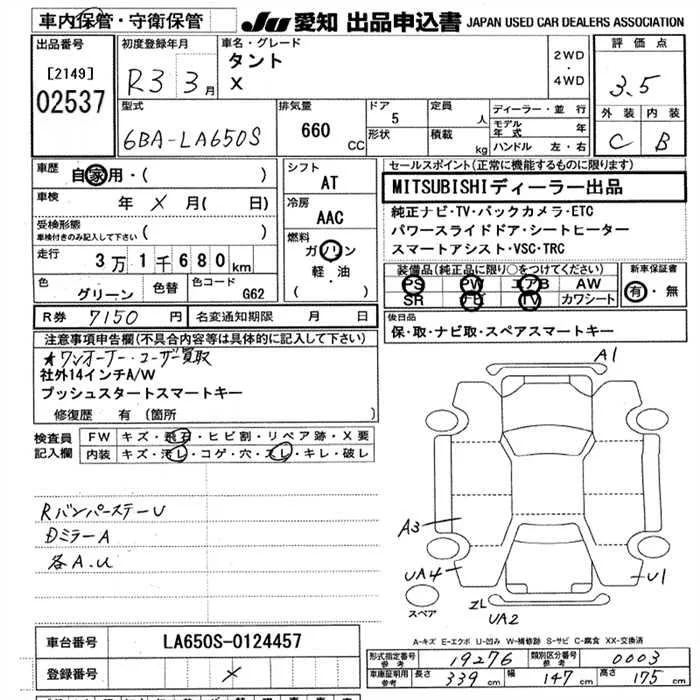 車内保管・守衛保管
JU 愛知 出品申込書 JAPAN USED CAR DEALERS ASSOCIATION
出品番号
[2149]
02537
初度登録年月
R3 3月
車名・グレード
タント
X
2WD
・
4WD
評価点
3.5
外装 内装
C B
型式
6BA-LA650S
排気量
660 CC
ドア
5
形状
定員
人
積載
kg
ディーラー・並行
モデル年式 年
ハンドル 左・右
車歴
自家用・( )
車検
年 X 月( 日)
受検形態
車検付きのみ記入して下さい ( )
走行
3万1千680km
色
グリーン
色替
色コード
G62
シフト
AT
冷房
AAC
燃料
ガソリン
軽・油
( )
セールスポイント(正常に機能するものに限ります)
MITSUBISHIディーラー出品
純正ナビ・TV・バックカメラ・ETC
パワースライドドア・シートヒーター
スマートアシスト・VSC・TRC
装備品(純正品に限り○をつけてください)
PS PW エアB AW
SR ナビ TV カワシート
新車保証書
有・無
R券 7150円
名変通知期限 月 日
後日品
保・取・ナビ取・スペアスマートキー
注意事項申告欄(不具合内容等は具体的に記入して下さい)
★ワンオーナー・ユーザー買取
社外14インチA/W
プッシュスタートスマートキー
修復歴 有 (箇所
検査員
記入欄
FW キズ・飛石・ヒビ割・リペア跡・X要
内装 キズ・汚レ・コゲ・穴・スレ・キレ・破レ
RバンパーステーU
DミラーA
各A.U
A1
A3
UA4
U1
スペア
ZL
UA2
A-キズ E-エクボ U-凹み W-補修跡 S-サビ C-腐食 XX-交換済
車台番号
LA650S-0124457
登録番号
X
形式指定番号
参考
19276
類別区分番号
参考
0003
車庫証明用
参考
長さ 339 cm
幅 147 cm
高さ 175 cm